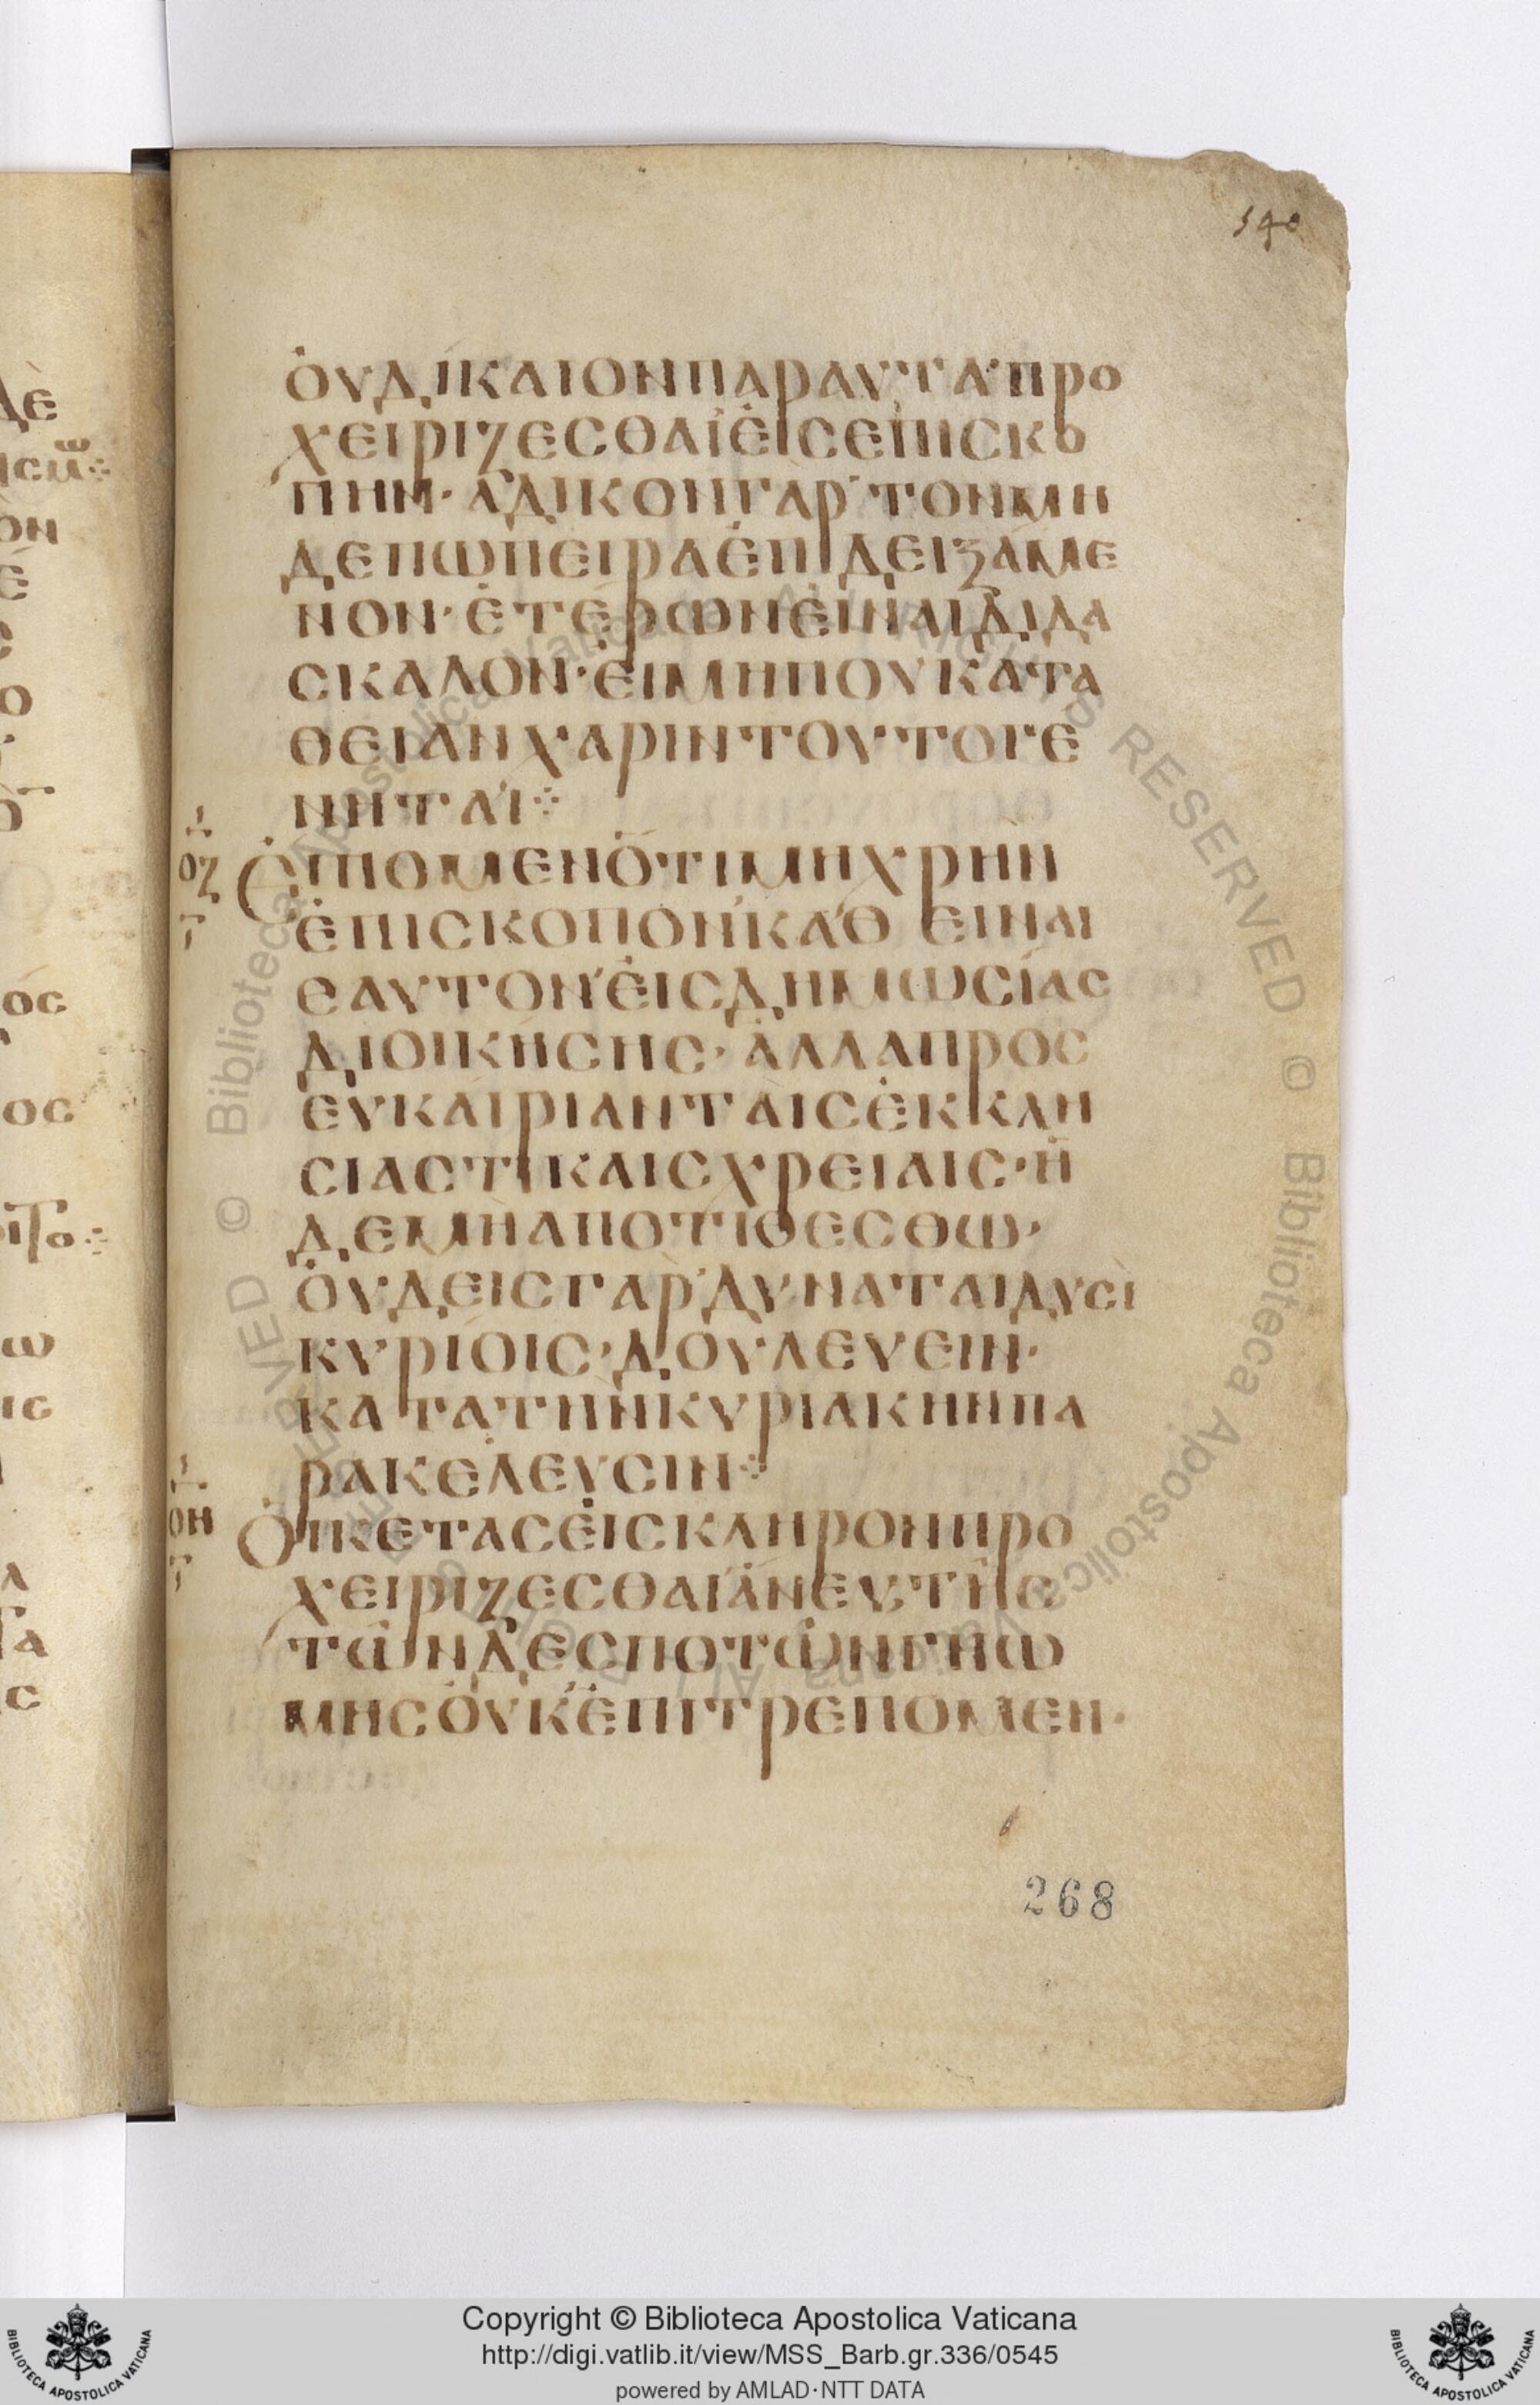 540
ὀυδικαιονπαραυτα'προ
χειριζεσθαιἐισεπισκο
πην· ἀδικονγαρ'τονμη
δεπωπειραἐπιδειξαμε
νον· ἑτέρωνἐιναιδιδα
σκαλον· ἐιμηπουκατα
θειανχαριντουτογε
νηται ⁘
οζ
Ἐιπομενὅτιμηχρην
ἐπισκοπον'καθειναι
εαυτον'ἐισδημωσίας
διοικησης· ἀλλαπρος
ευκαιριανταισἐκκλη
σιαστικαισχρειαις· ἢ
δεμηαποτιθεσθω·
ὀυδεισγαρ'δυναταιδυσὶ
κυρίοις· δουλευειν·
κατατηνκυριακηνπα
ρακελευσιν ⁘
οη
Ὀικετασἐισκληρονπρο
χειριζεσθαι'ἄνευτησ
τῶνδεσποτῶνγνω
μησὀυκἐπιτρεπομεν·
268
Copyright © Biblioteca Apostolica Vaticana
http://digi.vatlib.it/view/MSS_Barb.gr.336/0545
powered by AMLAD·NTT DATA